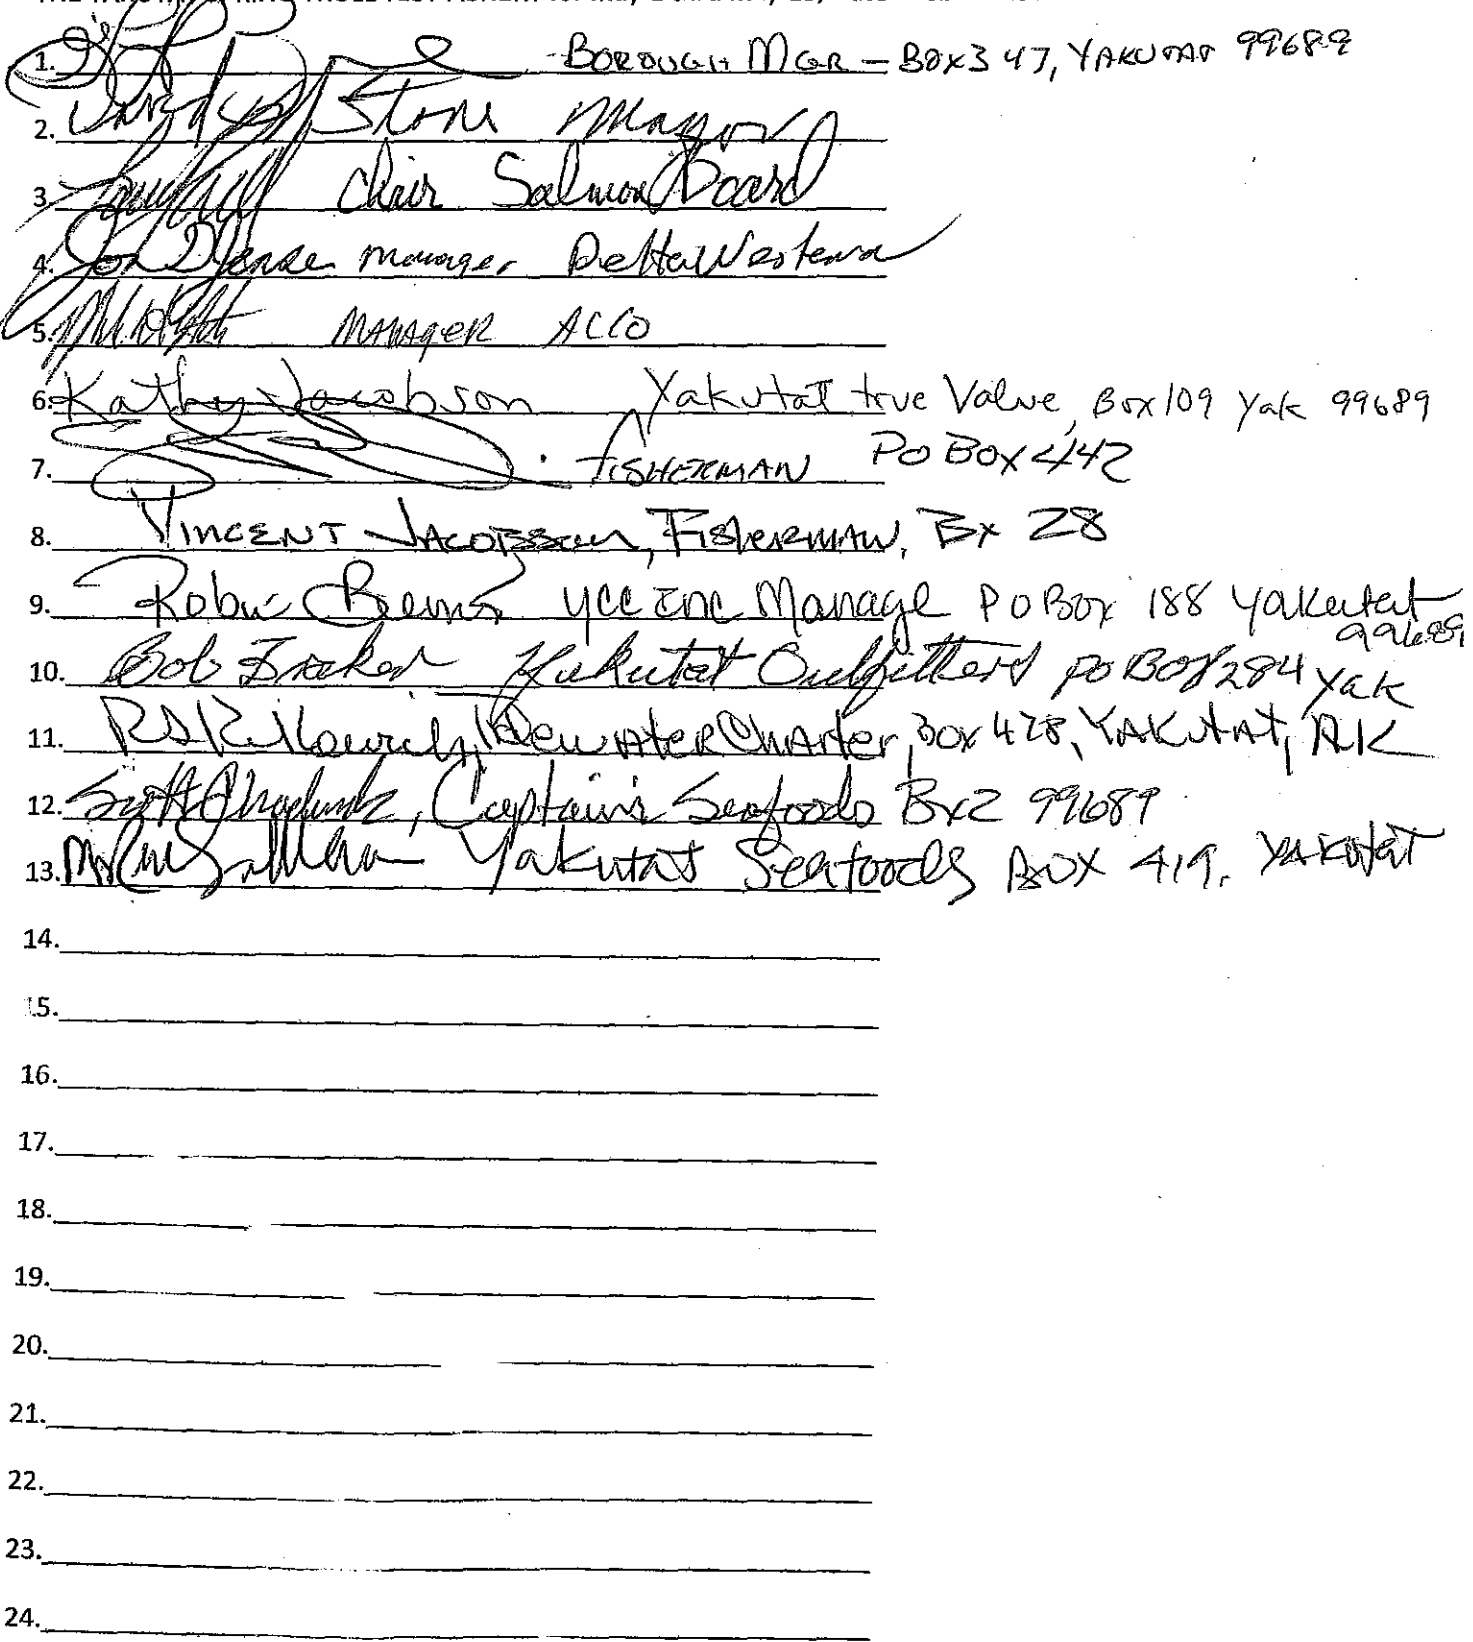 1. - BOROUGH MGR - BOX 347, YAKUTAT 99689
2. Stone Mayor
3. Chair Salmon Board
4. Jon manager Delta Western
5. MANAGER ACCO
6. Kathy Jacobson Yakutat true Value, Box 109 Yak 99689
7. FISHERMAN PO Box 442
8. VINCENT JACOBSON, FISHERMAN, Bx 28
9. Robin YCC Inc Manage P O Box 188 Yakutat
99689
10. Bob Yakutat Outfitters PO Box 284 Yak
11. Charter, Box 428, YAKUTAT, AK
12. Scott Captain's Seafoods Bx2 99689
13. Yakutat Seafoods BOX 419, YAKUTAT
14.
15.
16.
17.
18.
19.
20.
21.
22.
23.
24.